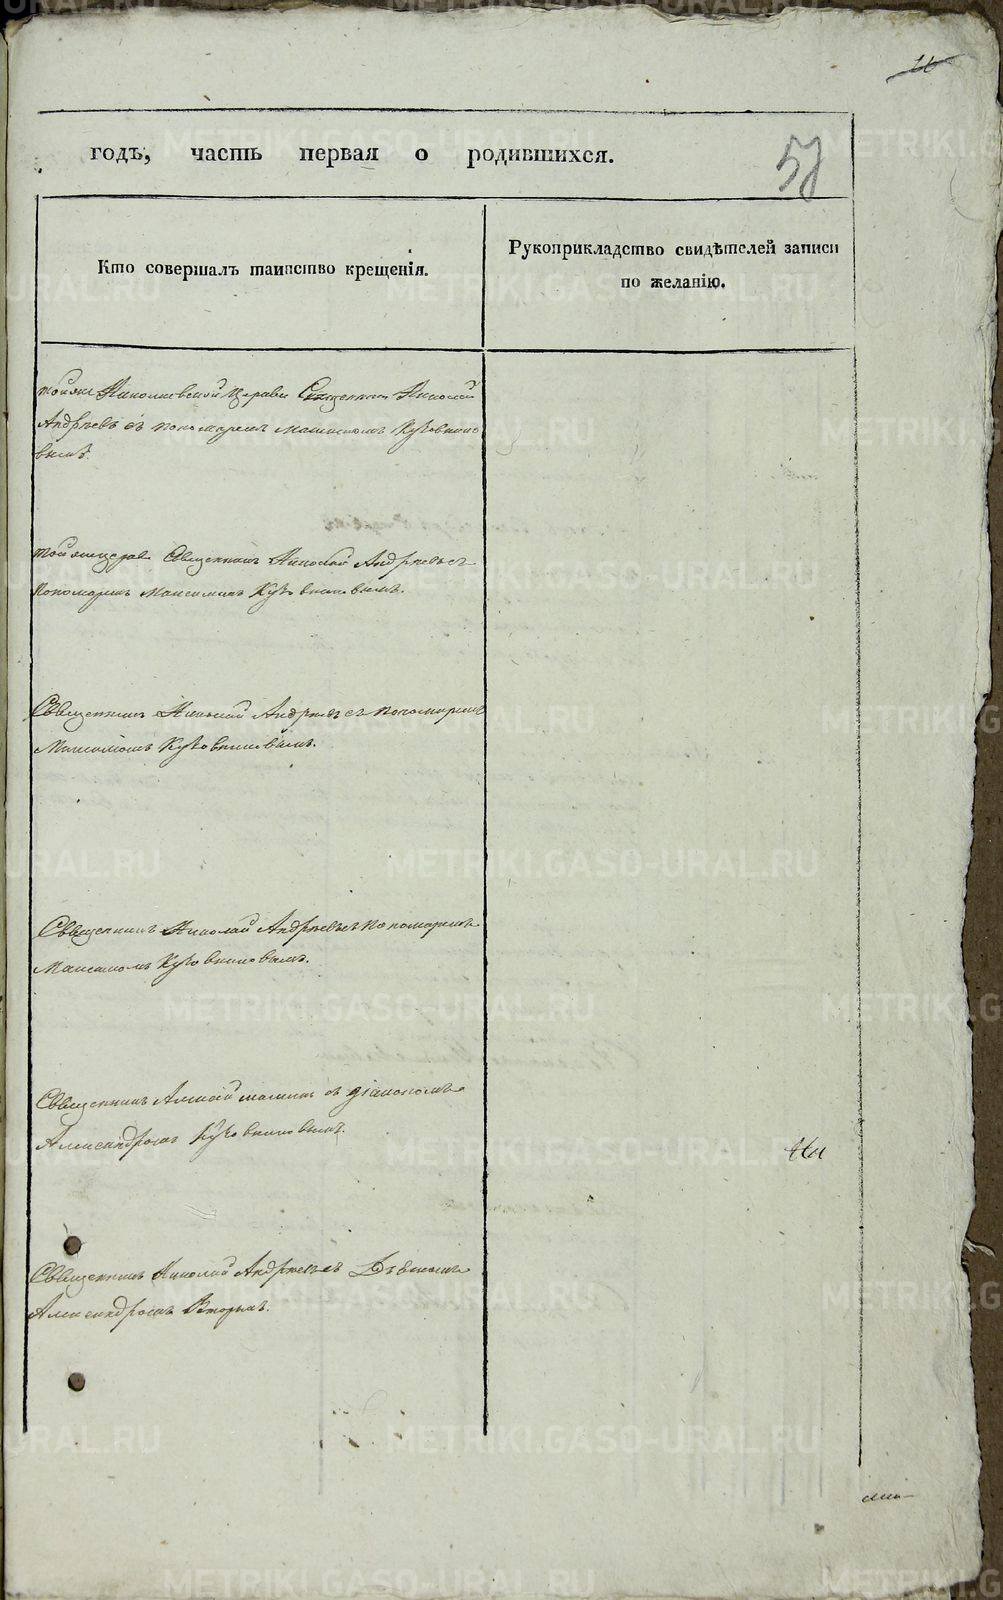 годъ, часть первая о родившихся.
57
Кто совершалъ таинство крещенія.
Рукоприкладство свидѣтелей записи
по желанію.
тойже Николаевской Церкви Священникъ Николай
Андрѣевъ съ пономаремъ Максимомъ Кузовников
вымъ.
тойже церкви Священникъ Николай Андрѣевъ съ
пономаремъ Максимомъ Кузовниковымъ.
Священникъ Николай Андрѣевъ съ пономаремъ
Максимомъ Кузовниковымъ.
Священникъ Николай Андрѣевъ съ пономаремъ
Максимомъ Кузовниковымъ.
Священникъ Алексѣй съ діакономъ
Александромъ Кузовниковымъ.
Священникъ Николай Андрѣевъ съ
Александромъ
METRIKI.GASO-URAL.RU